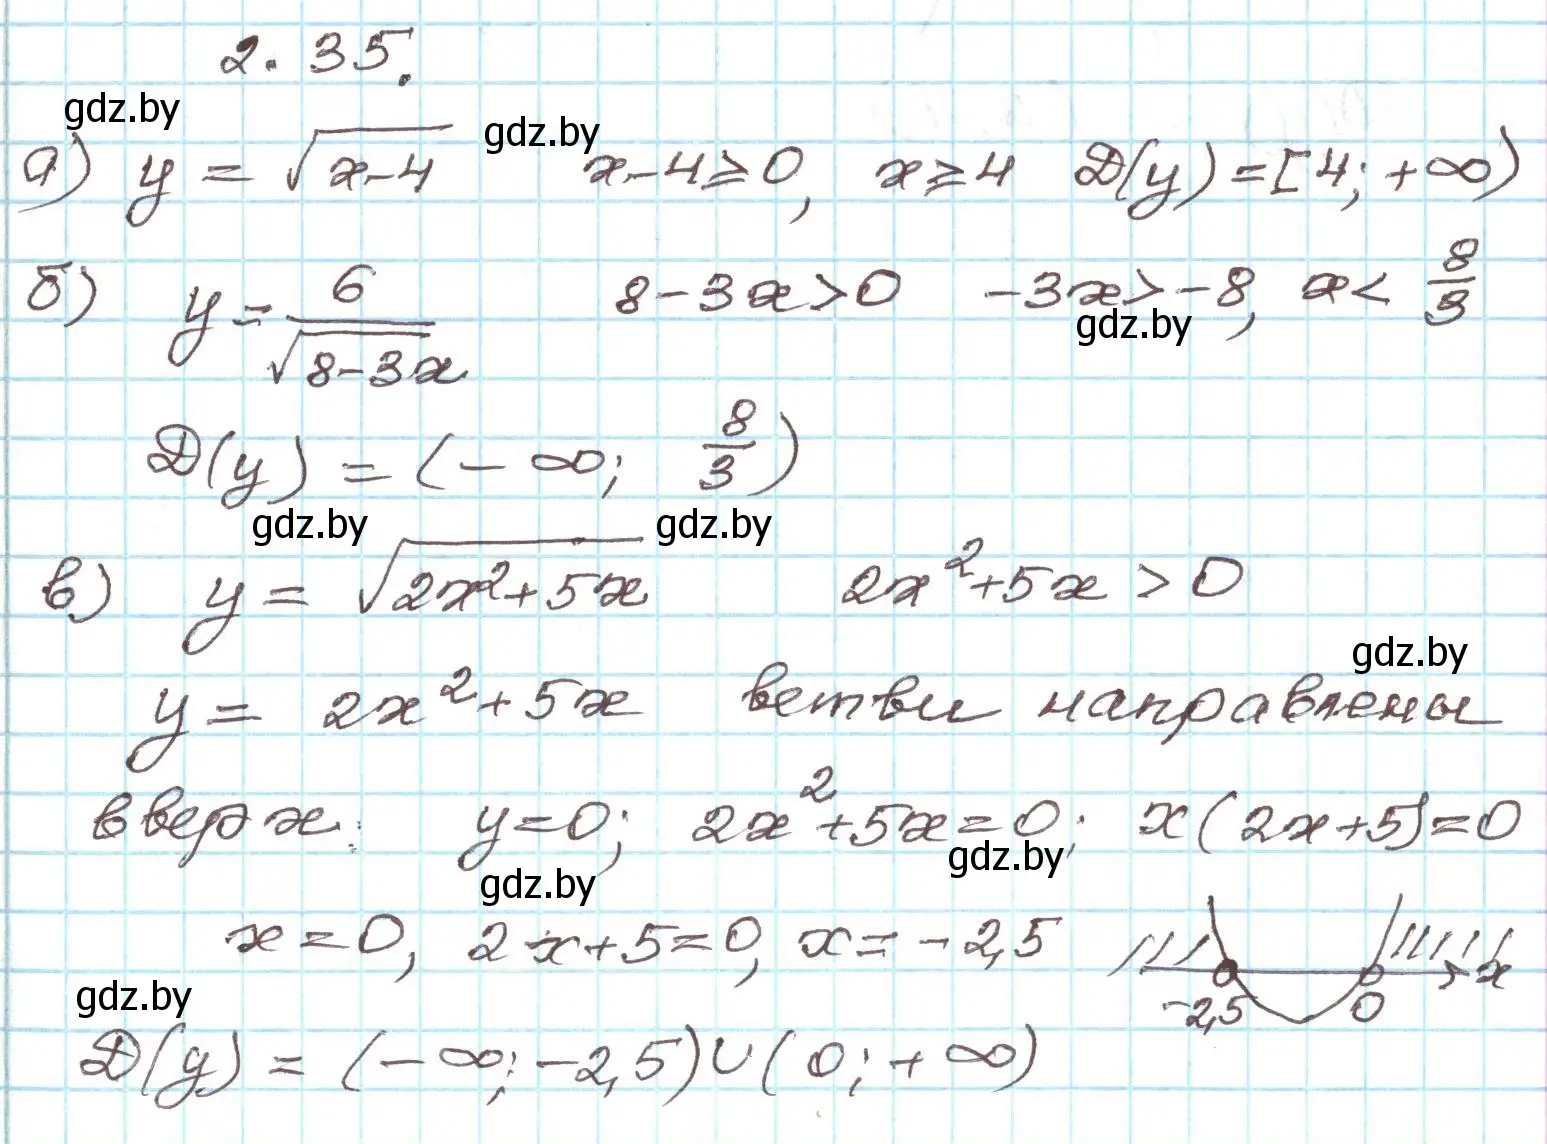 2.35.
gdz.by
gdz.by
а) y = √(x-4) x-4≥0, x≥4 D(y)=[4; +∞)
б) y = 6/√(8-3x) 8-3x>0 -3x>-8, x< 8/3
gdz.by
D(y) = (-∞; 8/3)
gdz.by
gdz.by
в) y = √(2x²+5x) 2x²+5x > 0
gdz.by
y = 2x²+5x ветви направлены
вверх: y=0; 2x²+5x=0; x(2x+5)=0
gdz.by
gdz.by
x=0, 2x+5=0, x=-2,5
-2,5 0 x
gdz.by
D(y) = (-∞; -2,5)∪(0; +∞)